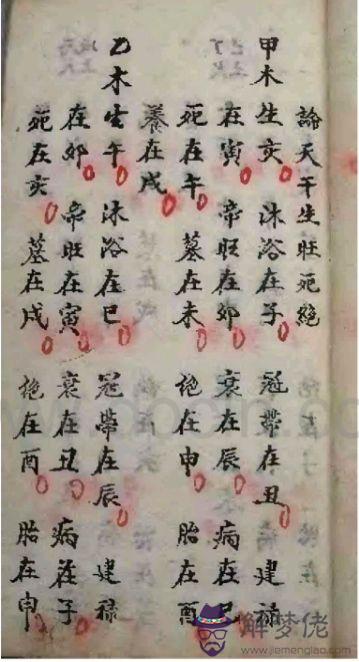 論天干生旺死絕
甲木生亥 沐浴在子 冠帶在丑 建祿
在寅 帝旺在卯 衰在辰 病在巳
死在午 墓在未 絕在申 胎在酉
養在戌
乙木生午 沐浴在巳 冠帶在辰 建祿
在卯 帝旺在寅 衰在丑 病在子
死在亥 墓在戌 絕在酉 胎在申
解梦佬
www.jiemenglao.com